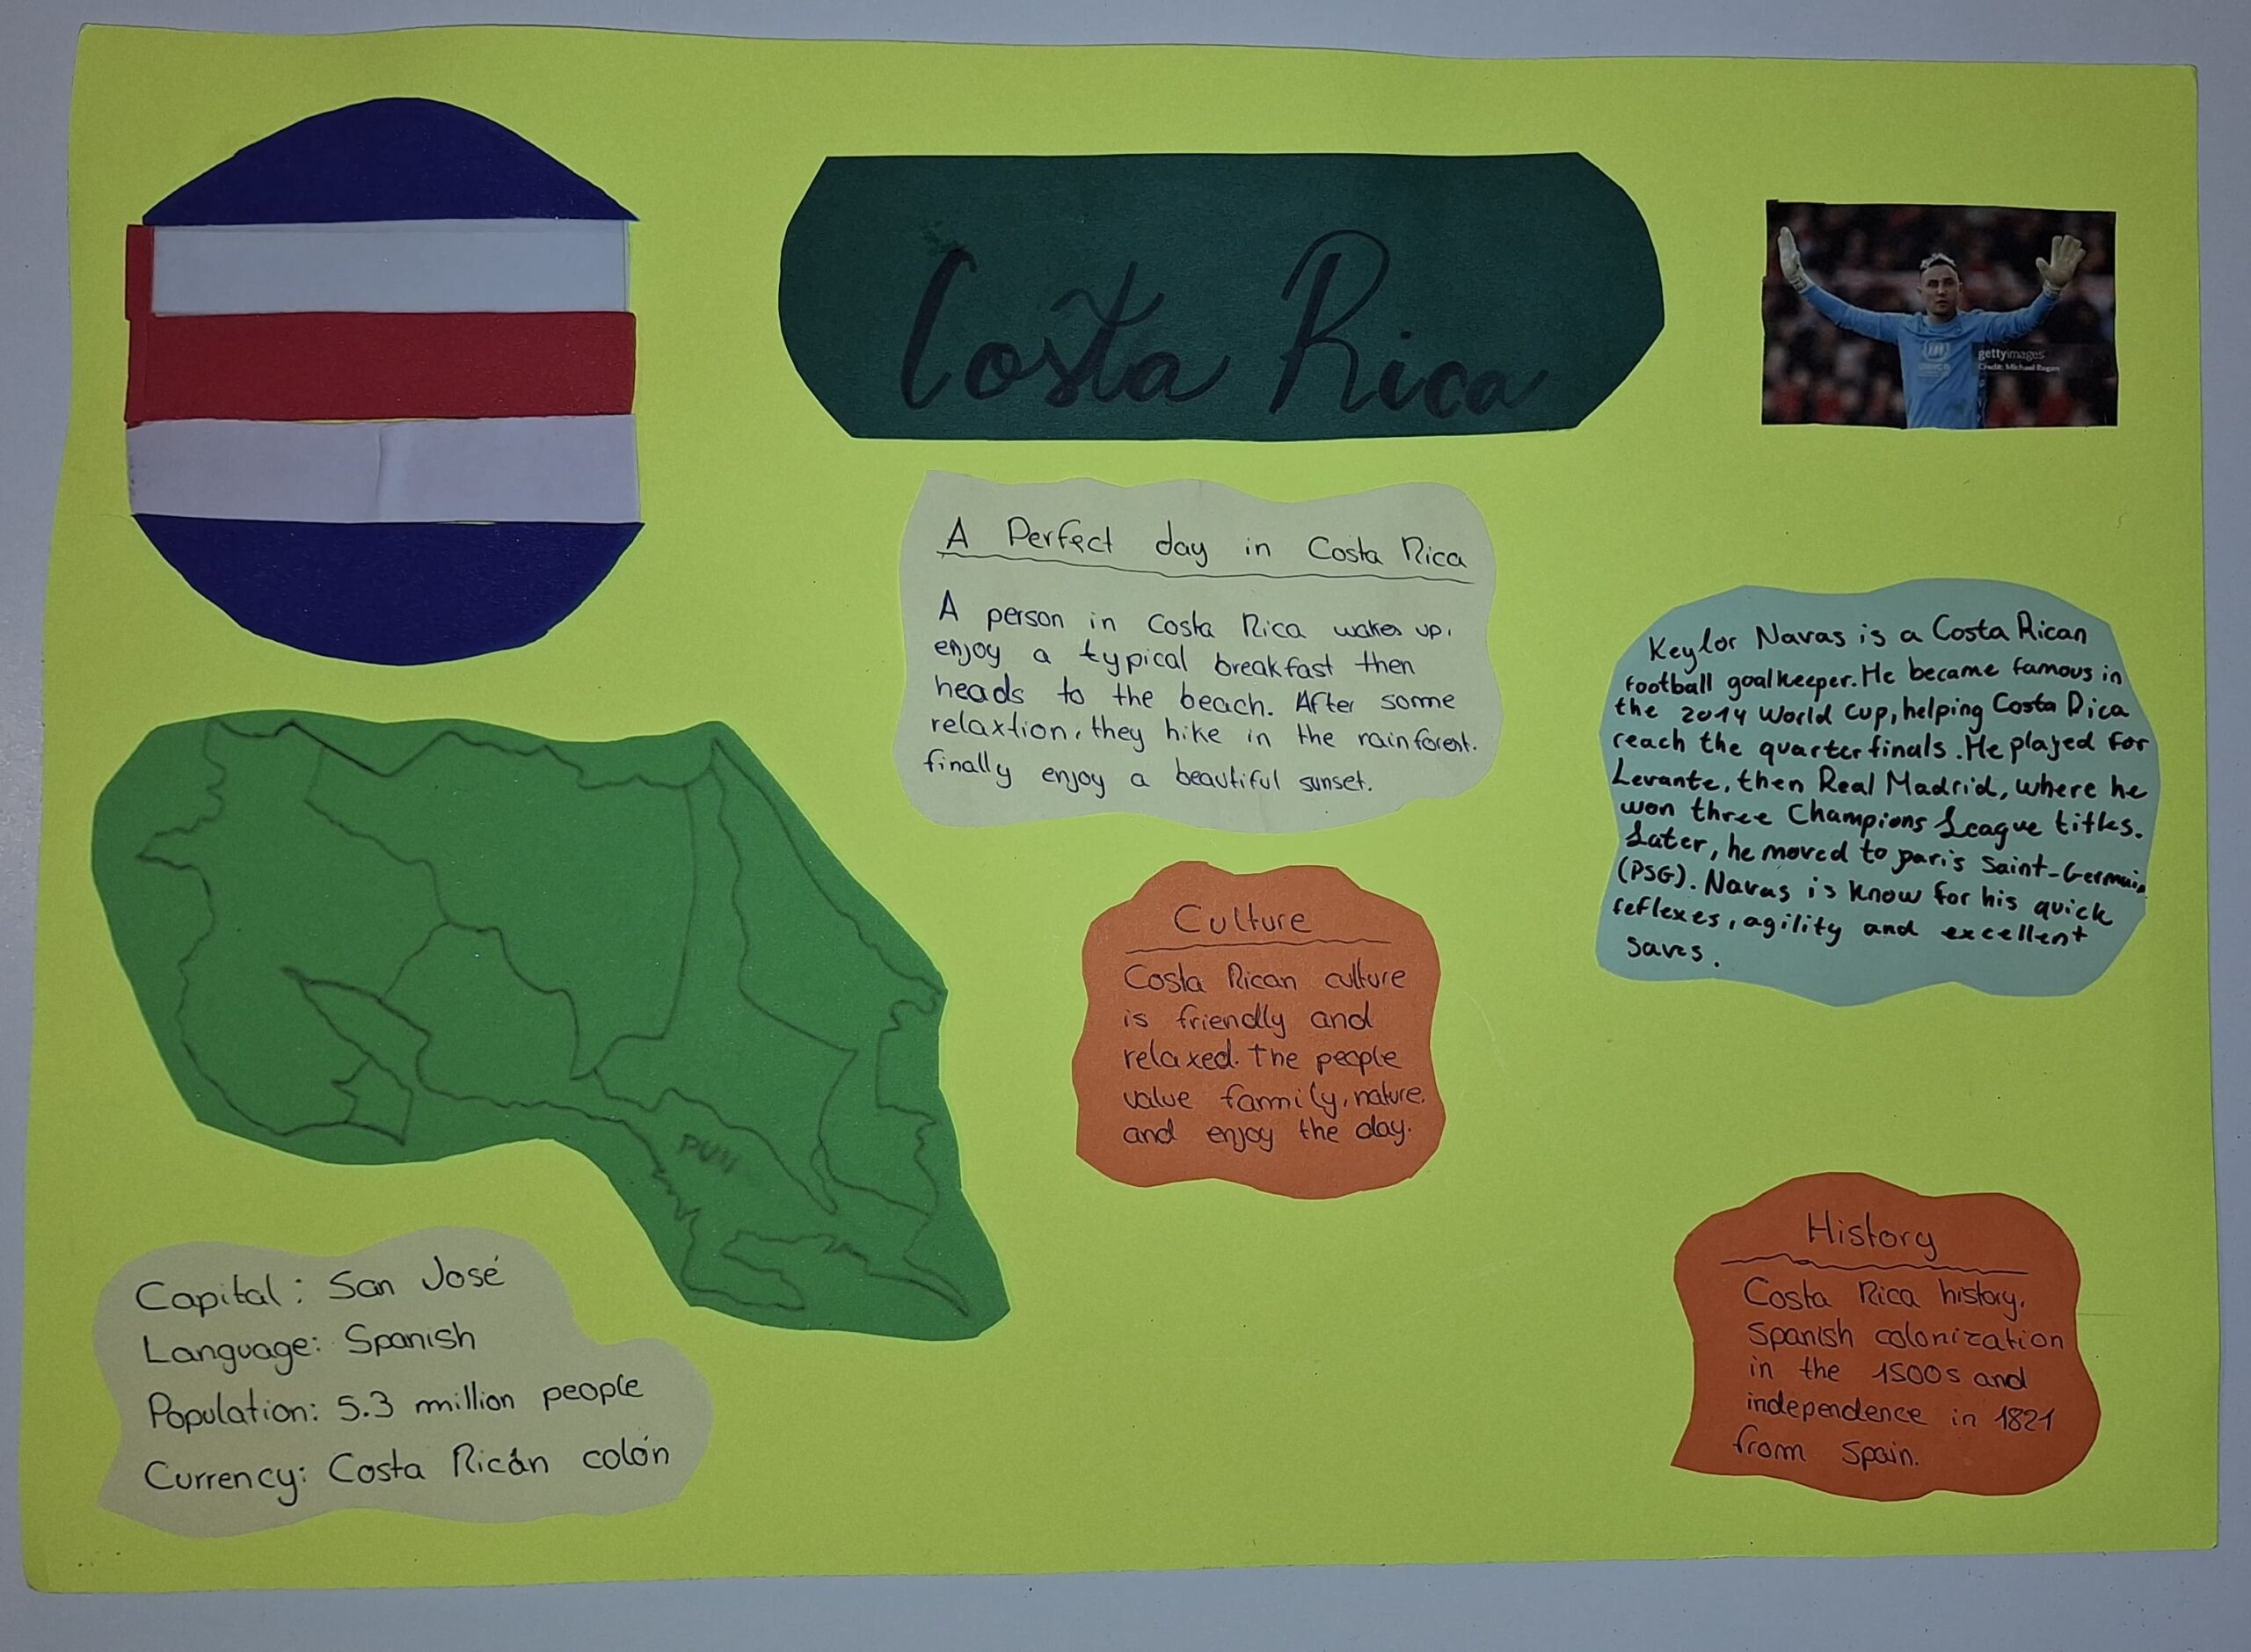 Costa Rica
gettyimages
Credit: Michael Regan
A Perfect day in Costa Rica
A person in Costa Rica wakes up,
enjoy a typical breakfast then
heads to the beach. After some
relaxtion, they hike in the rainforest.
finally enjoy a beautiful sunset.
Keylor Navas is a Costa Rican
football goalkeeper. He became famous in
the 2014 World Cup, helping Costa Rica
reach the quarterfinals. He played for
Levante, then Real Madrid, where he
won three Champions League titles.
Later, he moved to paris Saint-Germain
(PSG). Navas is know for his quick
reflexes, agility and excellent
saves.
Culture
Costa Rican culture
is friendly and
relaxed. the people
value family, nature,
and enjoy the day.
PUN
Capital: San José
Language: Spanish
Population: 5.3 million people
Currency: Costa Ricán colón
History
Costa Rica history,
Spanish colonization
in the 1500s and
independence in 1821
from Spain.